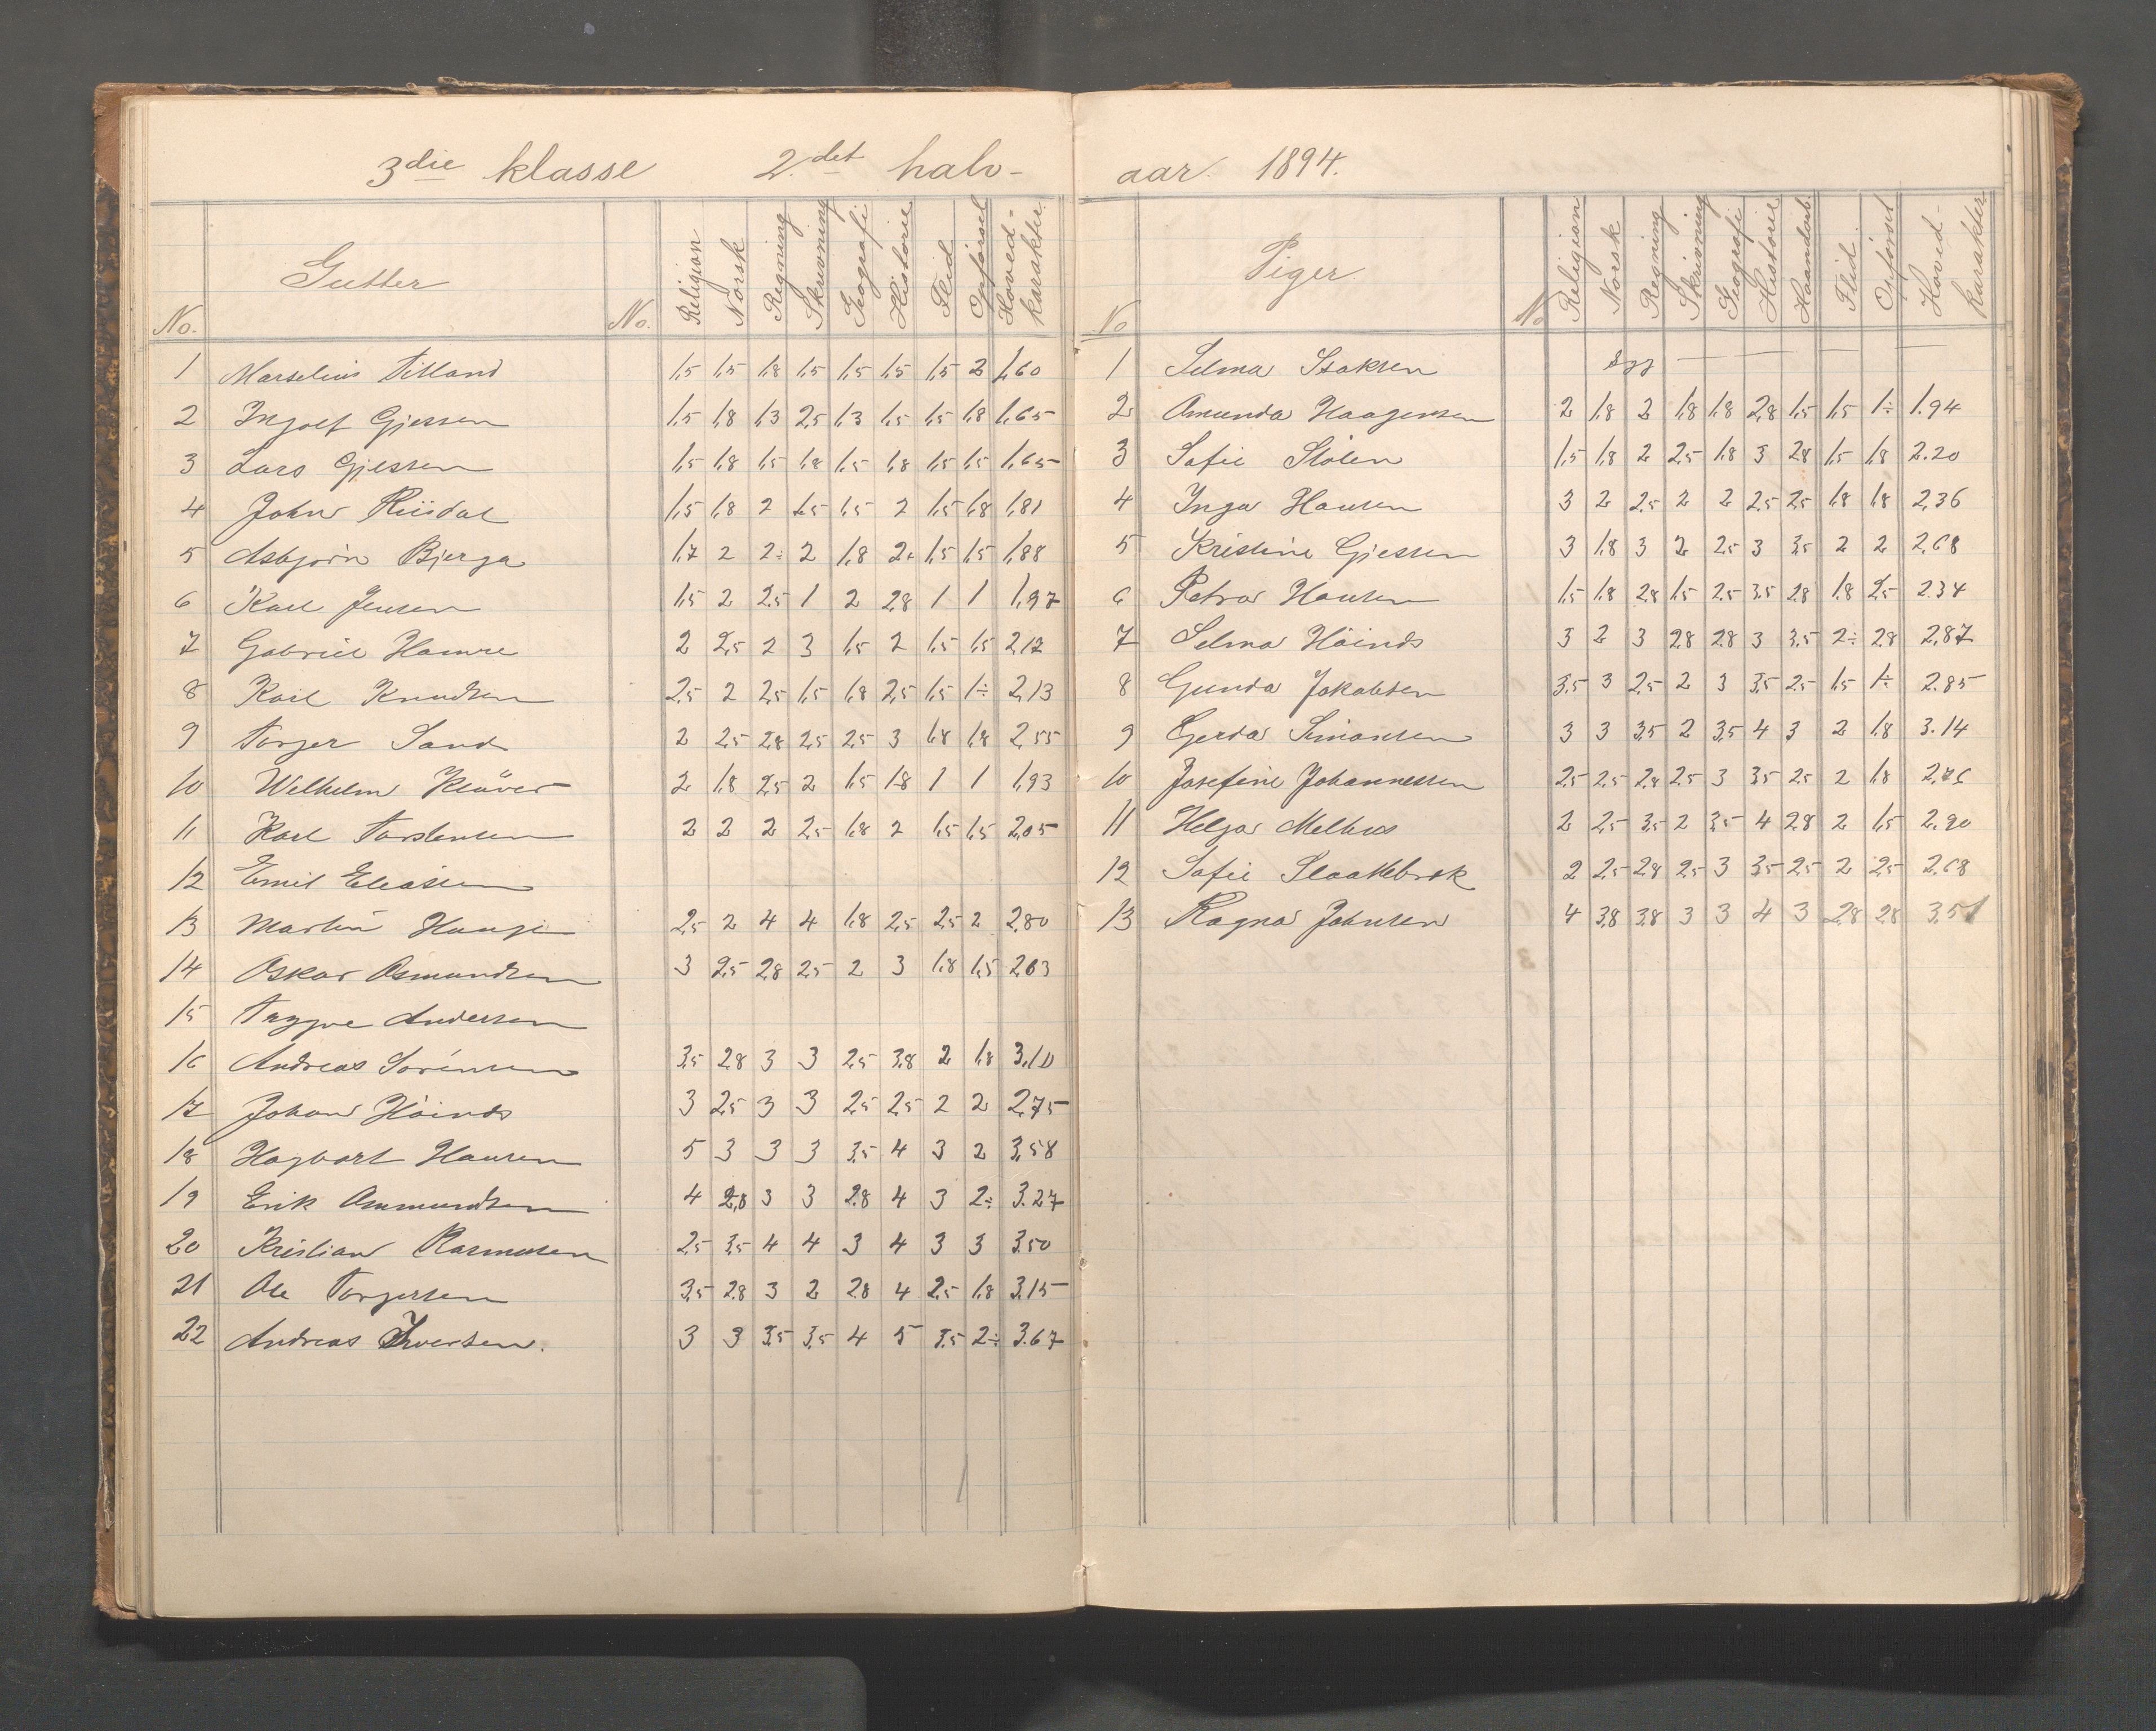 3die klasse 2.det halv-
No. Gutter No. Religion Norsk Regning Skrivning Geografi Historie Flid Opførsel Hoved-karakter
1 Marselius Titland 1,5 1,5 1,8 1,5 1,5 1,5 1,5 2 1,60
2 Ingolf Gjessen 1,5 1,8 1,3 2,5 1,3 1,5 1,5 1,8 1,65
3 Lars Gjessen 1,5 1,8 1,5 1,8 1,5 1,8 1,5 1,5 1,65
4 John Riisdal 1,5 1,8 2 2,5 1,5 2 1,5 1,8 1,81
5 Asbjørn Bjerga 1,7 2 2÷ 2 1,8 2+ 1,5 1,5 1,88
6 Karl Jensen 1,5 2 2,5 1 2 2,8 1 1 1,97
7 Gabriel Hamre 2 2,5 2 3 1,5 2 1,5 1,5 2,17
8 Karl Knudsen 2,5 2 2,5 1,5 1,8 2,5 1,5 1÷ 2,13
9 Torger Sand 2 2,5 2,8 2,5 2,5 3 1,8 1,8 2,55
10 Wilhelm Kløver 2 1,8 2,5 2 1,5 1,8 1 1 1,93
11 Karl Torstensen 2 2 2 2,5 1,8 2 1,5 1,5 2,05
12 Emil Eleasen
13 Martin Hauge 2,5 2 4 4 1,8 2,5 2,5 2 2,80
14 Oskar Osmundsen 3 2,5 2,8 2,5 2 3 1,8 1,5 2,63
15 Trygve Andersen
16 Andreas Sørensen 3,5 2,8 3 3 2,5 3,8 2 1,8 3,10
17 Johan Høinds 3 2,5 3 3 2,5 2,5 2 2 2,75
18 Hagbart Hansen 5 3 3 3 3,5 4 3 2 3,58
19 Erik Ommundsen 4 2,8 3 3 2,8 4 3 2÷ 3.27
20 Kristian Rasmussen 2,5 3,5 4 4 3 4 3 3 3.50
21 Ole Torgersen 3,5 2,8 3 2 2,8 4 2,5 1,8 3,15
22 Andreas Iversen. 3 3 3,5 3,5 4 5 3,5 2÷ 3.67
aar. 1894.
No Piger No Religion Norsk Regning Skrivning Geografi Historie Haandarb. Flid Opførsel Hoved-karakter
1 Selma Isaksen syg
2 Amunda Haagensen 2 1,8 2 1,8 1,8 2,8 1,5 1,5 1÷ 1.94
3 Sofie Stølen 1,5 1,8 2 2,5 1,8 3 2,8 1,5 1,8 2.20
4 Inga Hansen 3 2 2,5 2 2 2,5 2,5 1,8 1,8 2,36
5 Kristine Gjessen 3 1,8 3 2 2,5 3 3,5 2 2 2,68
6 Petra Hansen 1,5 1,8 2,8 1,5 2,5 3,5 2,8 1,8 2,5 2.34
7 Selma Høinds 3 2 3 2,8 2,8 3 3,5 2÷ 2,8 2,87
8 Gunda Jakobsen 3,5 3 2,5 2 3 3,5 2,5 1,5 1÷ 2.85
9 Gerda Simonsen 3 3 3,5 2 3,5 4 3 2 1,8 3.14
10 Josefine Johannessen 2,5 2,5 2,8 2,5 3 3,5 2,5 2 1,8 2,76
11 Helga Melhus 2 2,5 3,5 2 3,5 4 2,8 2 1,5 2,90
12 Sofie Slaattebrek 2 2,5 2,8 2,5 3 3,5 2,5 2 2,5 2,68
13 Ragna Johnsen 4 3,8 3,8 3 3 4 3 2,8 2,8 3,51